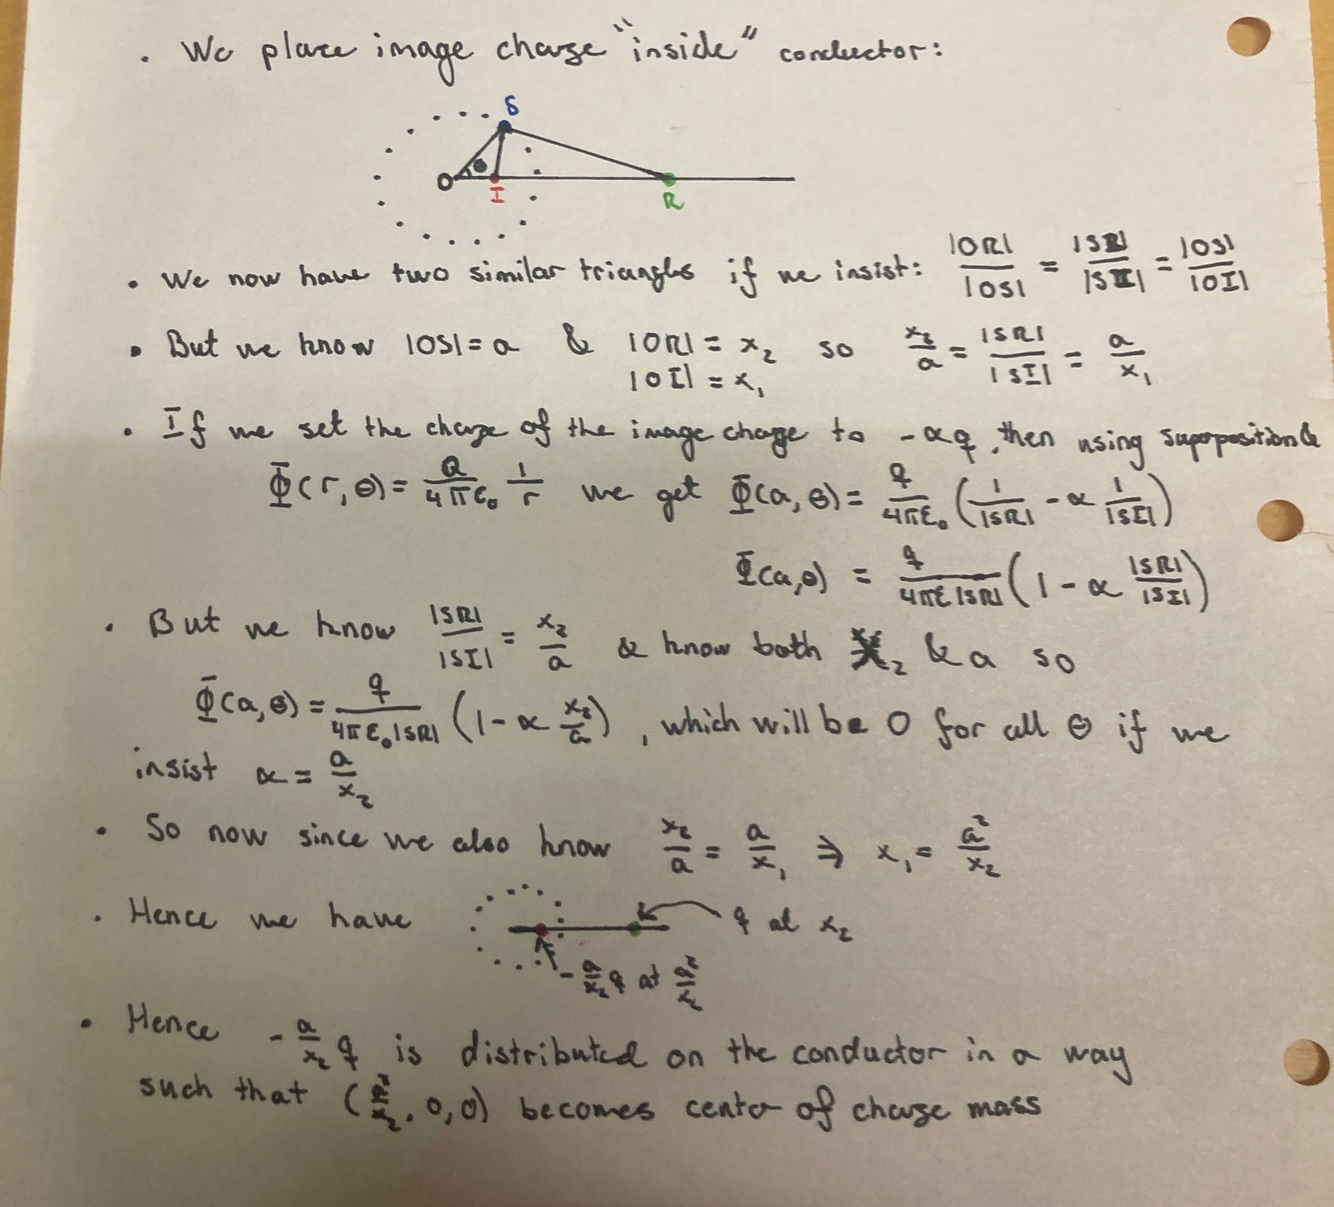 · We place image charge "inside" conductor:
S
O θ I R
· We now have two similar triangles if we insist: |OR|/|OS| = |SR|/|SI| = |OS|/|OI|
· But we know |OS| = a & |OR| = x₂ so x₂/a = |SR|/|SI| = a/x₁
|OI| = x₁
· If we set the charge of the image charge to -αq, then using superposition &
Φ(r,θ) = Q/4πε₀ 1/r we get Φ(a,θ) = q/4πε₀ (1/|SR| - α 1/|SI|)
Φ(a,θ) = q/4πε|SR| (1 - α |SR|/|SI|)
· But we know |SR|/|SI| = x₂/a & know both x₂ & a so
Φ(a,θ) = q/4πε₀|SR| (1 - α x₂/a), which will be 0 for all θ if we
insist α = a/x₂
· So now since we also know x₂/a = a/x₁ ⇒ x₁ = a²/x₂
· Hence we have q at x₂
-a/x₂ q at a²/x₂
· Hence -a/x₂ q is distributed on the conductor in a way
such that (a²/x₂, 0, 0) becomes center of charge mass